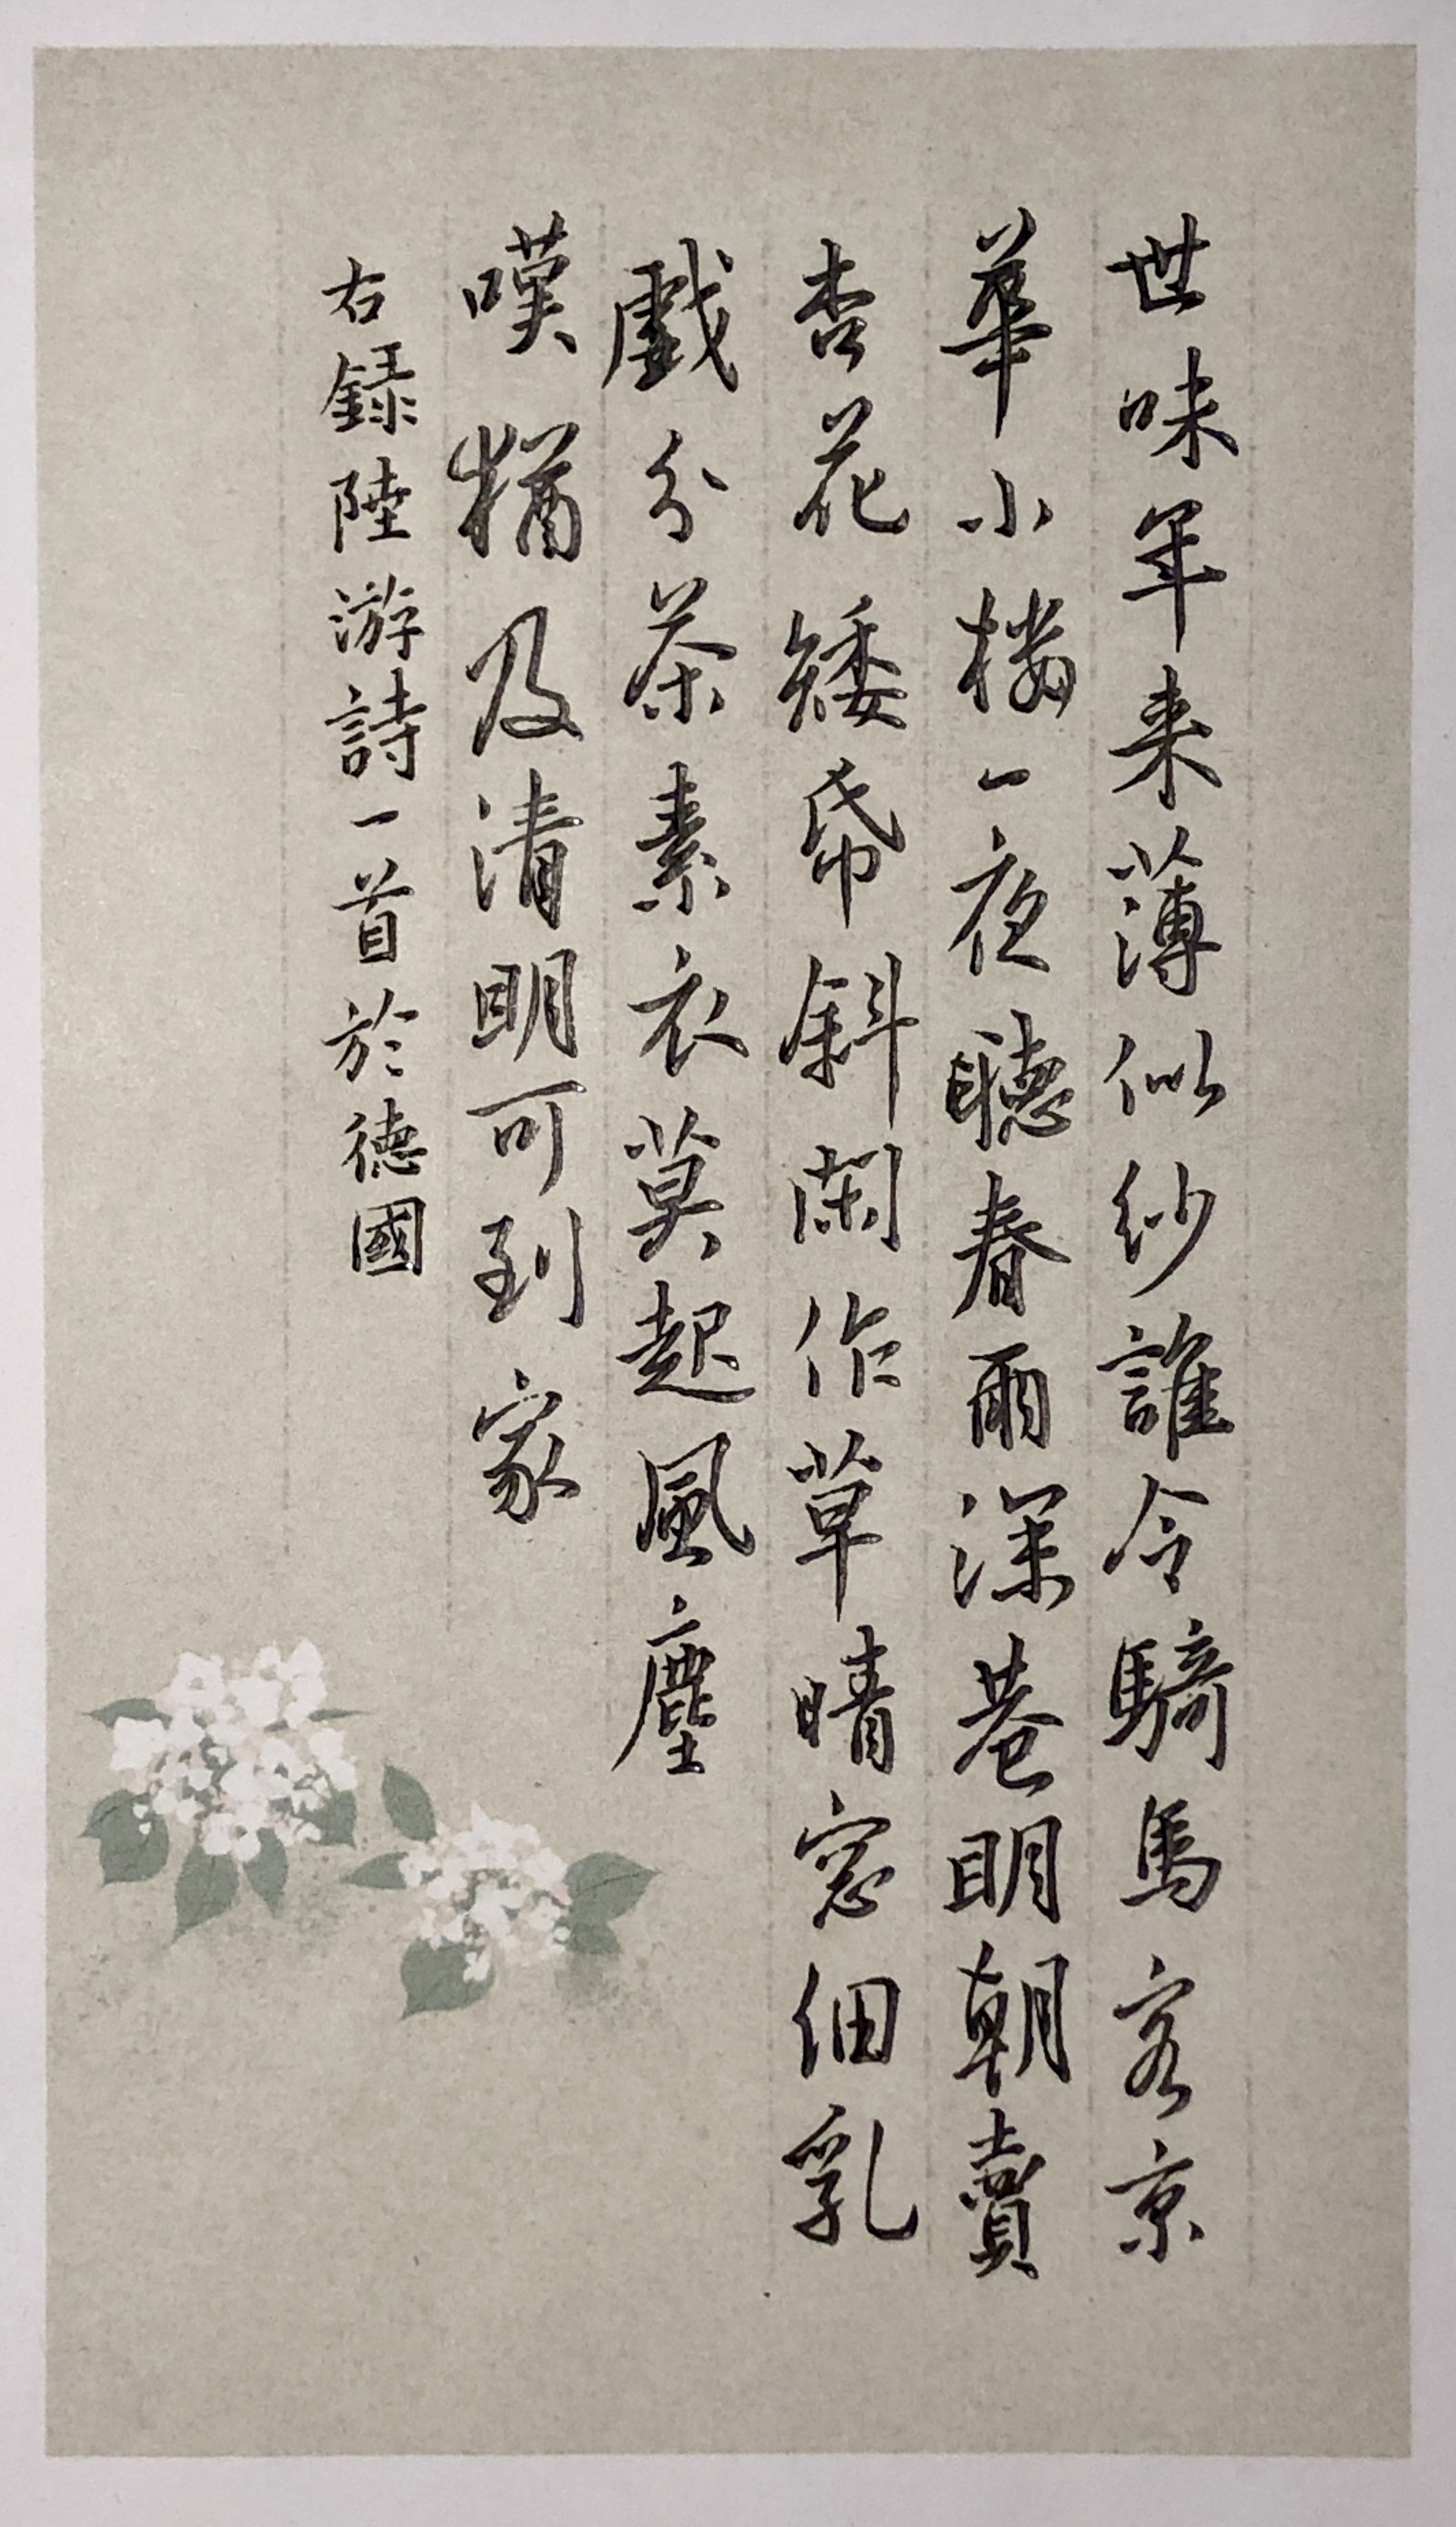 世味年来薄似紗誰令騎馬客京
華小樓一夜聽春雨深巷明朝賣
杏花矮帋斜閑作草晴窓細乳
戲分茶素衣莫起風塵
嘆猶及清明可到家
右録陸游詩一首於德國